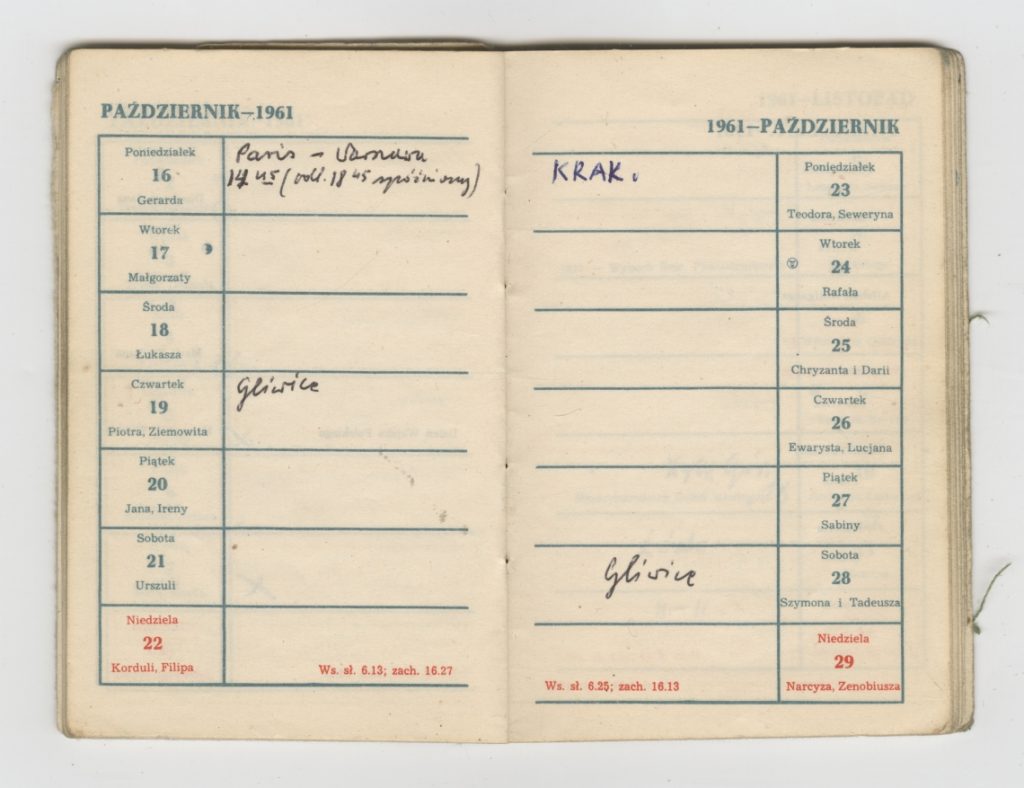 PAŹDZIERNIK—1961
Poniedziałek
16
Gerarda
Paris – Warszawa
14 45 (odl. 18 45 spóźniony)
Wtorek
17
Małgorzaty
Środa
18
Łukasza
Czwartek
19
Piotra, Ziemowita
Gliwice
Piątek
20
Jana, Ireny
Sobota
21
Urszuli
Niedziela
22
Korduli, Filipa
Ws. sł. 6.13; zach. 16.27
1961—PAŹDZIERNIK
KRAK.
Poniędziałek
23
Teodora, Seweryna
Wtorek
24
Rafała
Środa
25
Chryzanta i Darii
Czwartek
26
Ewarysta, Lucjana
Piątek
27
Sabiny
Gliwice
Sobota
28
Szymona i Tadeusza
Niedziela
29
Narcyza, Zenobiusza
Ws. sł. 6.25; zach. 16.13